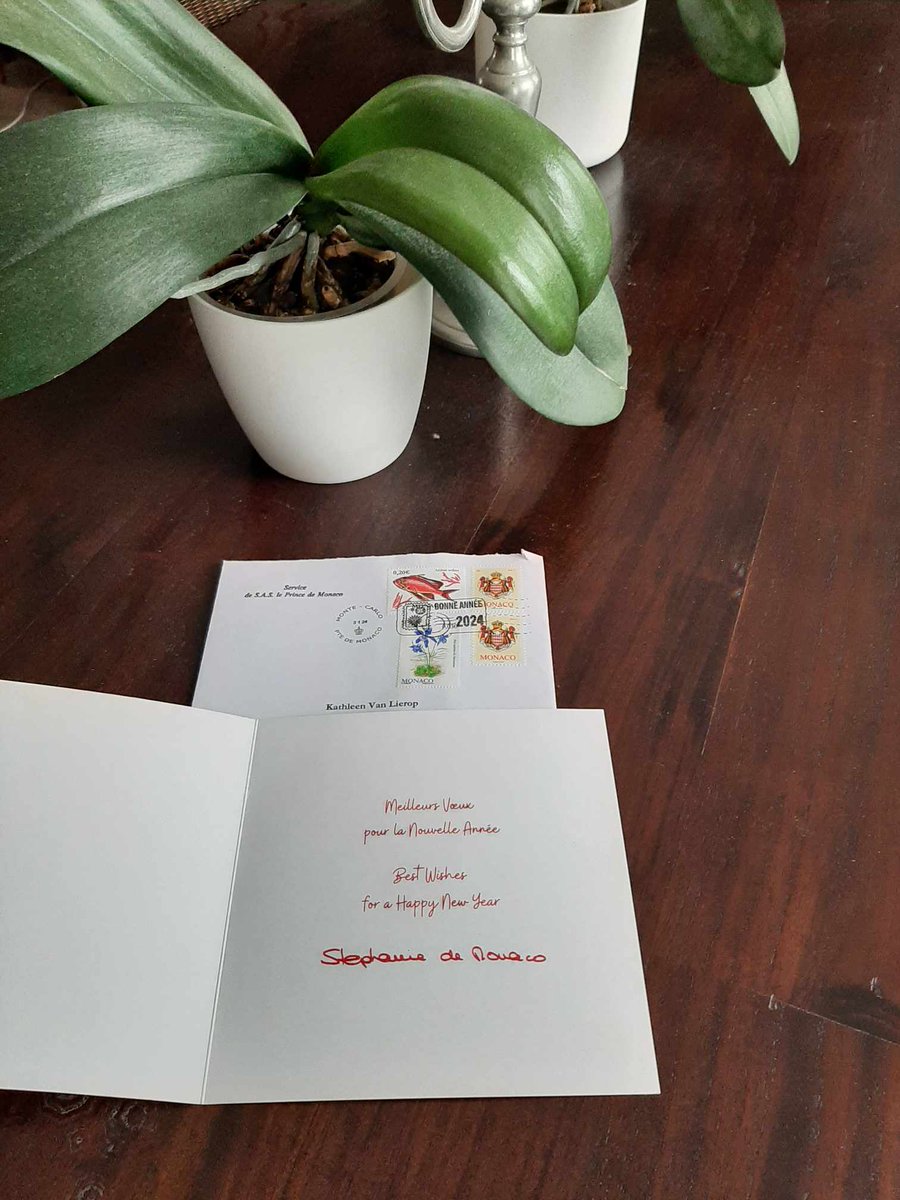 Service
de S.A.S. le Prince de Monaco
MONTE - CARLO
PTÉ DE MONACO
0,20€
BONNE ANNÉE
2024
MONACO
MONACO
MONACO
Kathleen Van Lierop
Meilleurs Vœux
pour la Nouvelle Année
Best Wishes
for a Happy New Year
Stephanie de Monaco